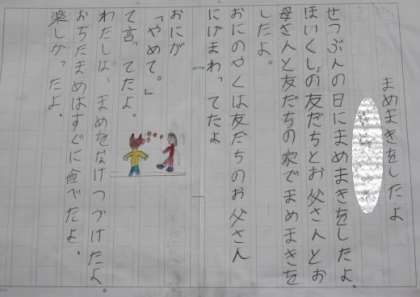 まめまきをしたよ
せつぶんの日にまめまきをしたよ。
ほいくしょの友だちとお父さんとお
母さんと友だちの家でまめまきを
したよ。
おにのやくは友だちのお父さん
にげまわってたよ
おにが
「やめて。」
て言ってたよ。
わたしは、まめをなげつづけたよ。
おちたまめはすぐに食べたよ。
楽しかったよ。